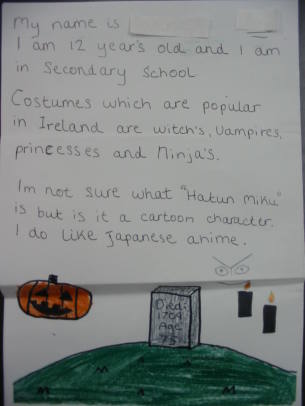 My name is
I am 12 year's old and I am
in Secondary School
Costumes which are popular
in Ireland are witch's, vampires,
princesses and Ninja's.
I'm not sure what "Hatun Miku"
is but is it a cartoon character.
I do like Japanese anime.
Died:
1704
Age
75